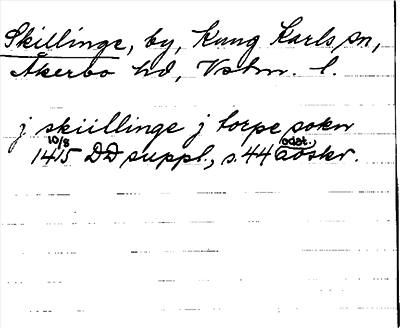 Skillinge, by, Kung Karls sn,
Åkerbo hd, Vstm. l.
j skiillinge j torpe sokn
10/8 1415 DD suppl., s. 44 (odat.) avskr.